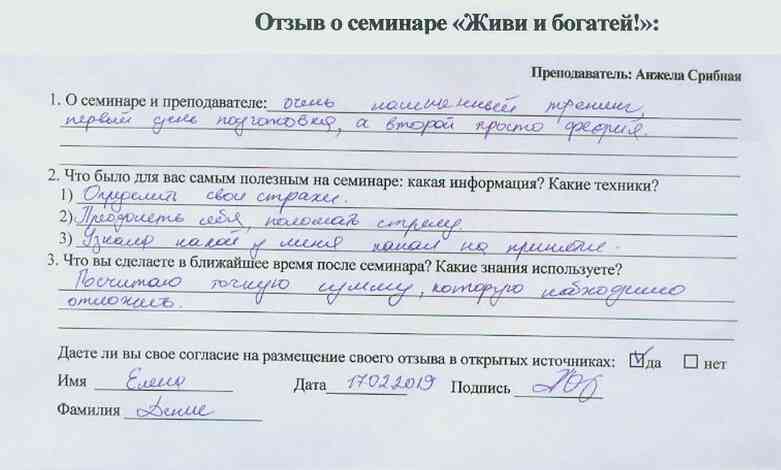 Отзыв о семинаре «Живи и богатей!»:
Преподаватель: Анжела Срибная
1. О семинаре и преподавателе: очень насыщенный тренинг,
первый день подготовка, а второй просто феерия.
2. Что было для вас самым полезным на семинаре: какая информация? Какие техники?
1) свои страхи.
2) Преодолеть себя, поломать
3) Узнала какой у меня канал на принятие.
3. Что вы сделаете в ближайшее время после семинара? Какие знания используете?
Посчитаю точную сумму, которую необходимо
отложить.
Даете ли вы свое согласие на размещение своего отзыва в открытых источниках: да нет
Имя Елена Дата 17.02.2019 Подпись
Фамилия